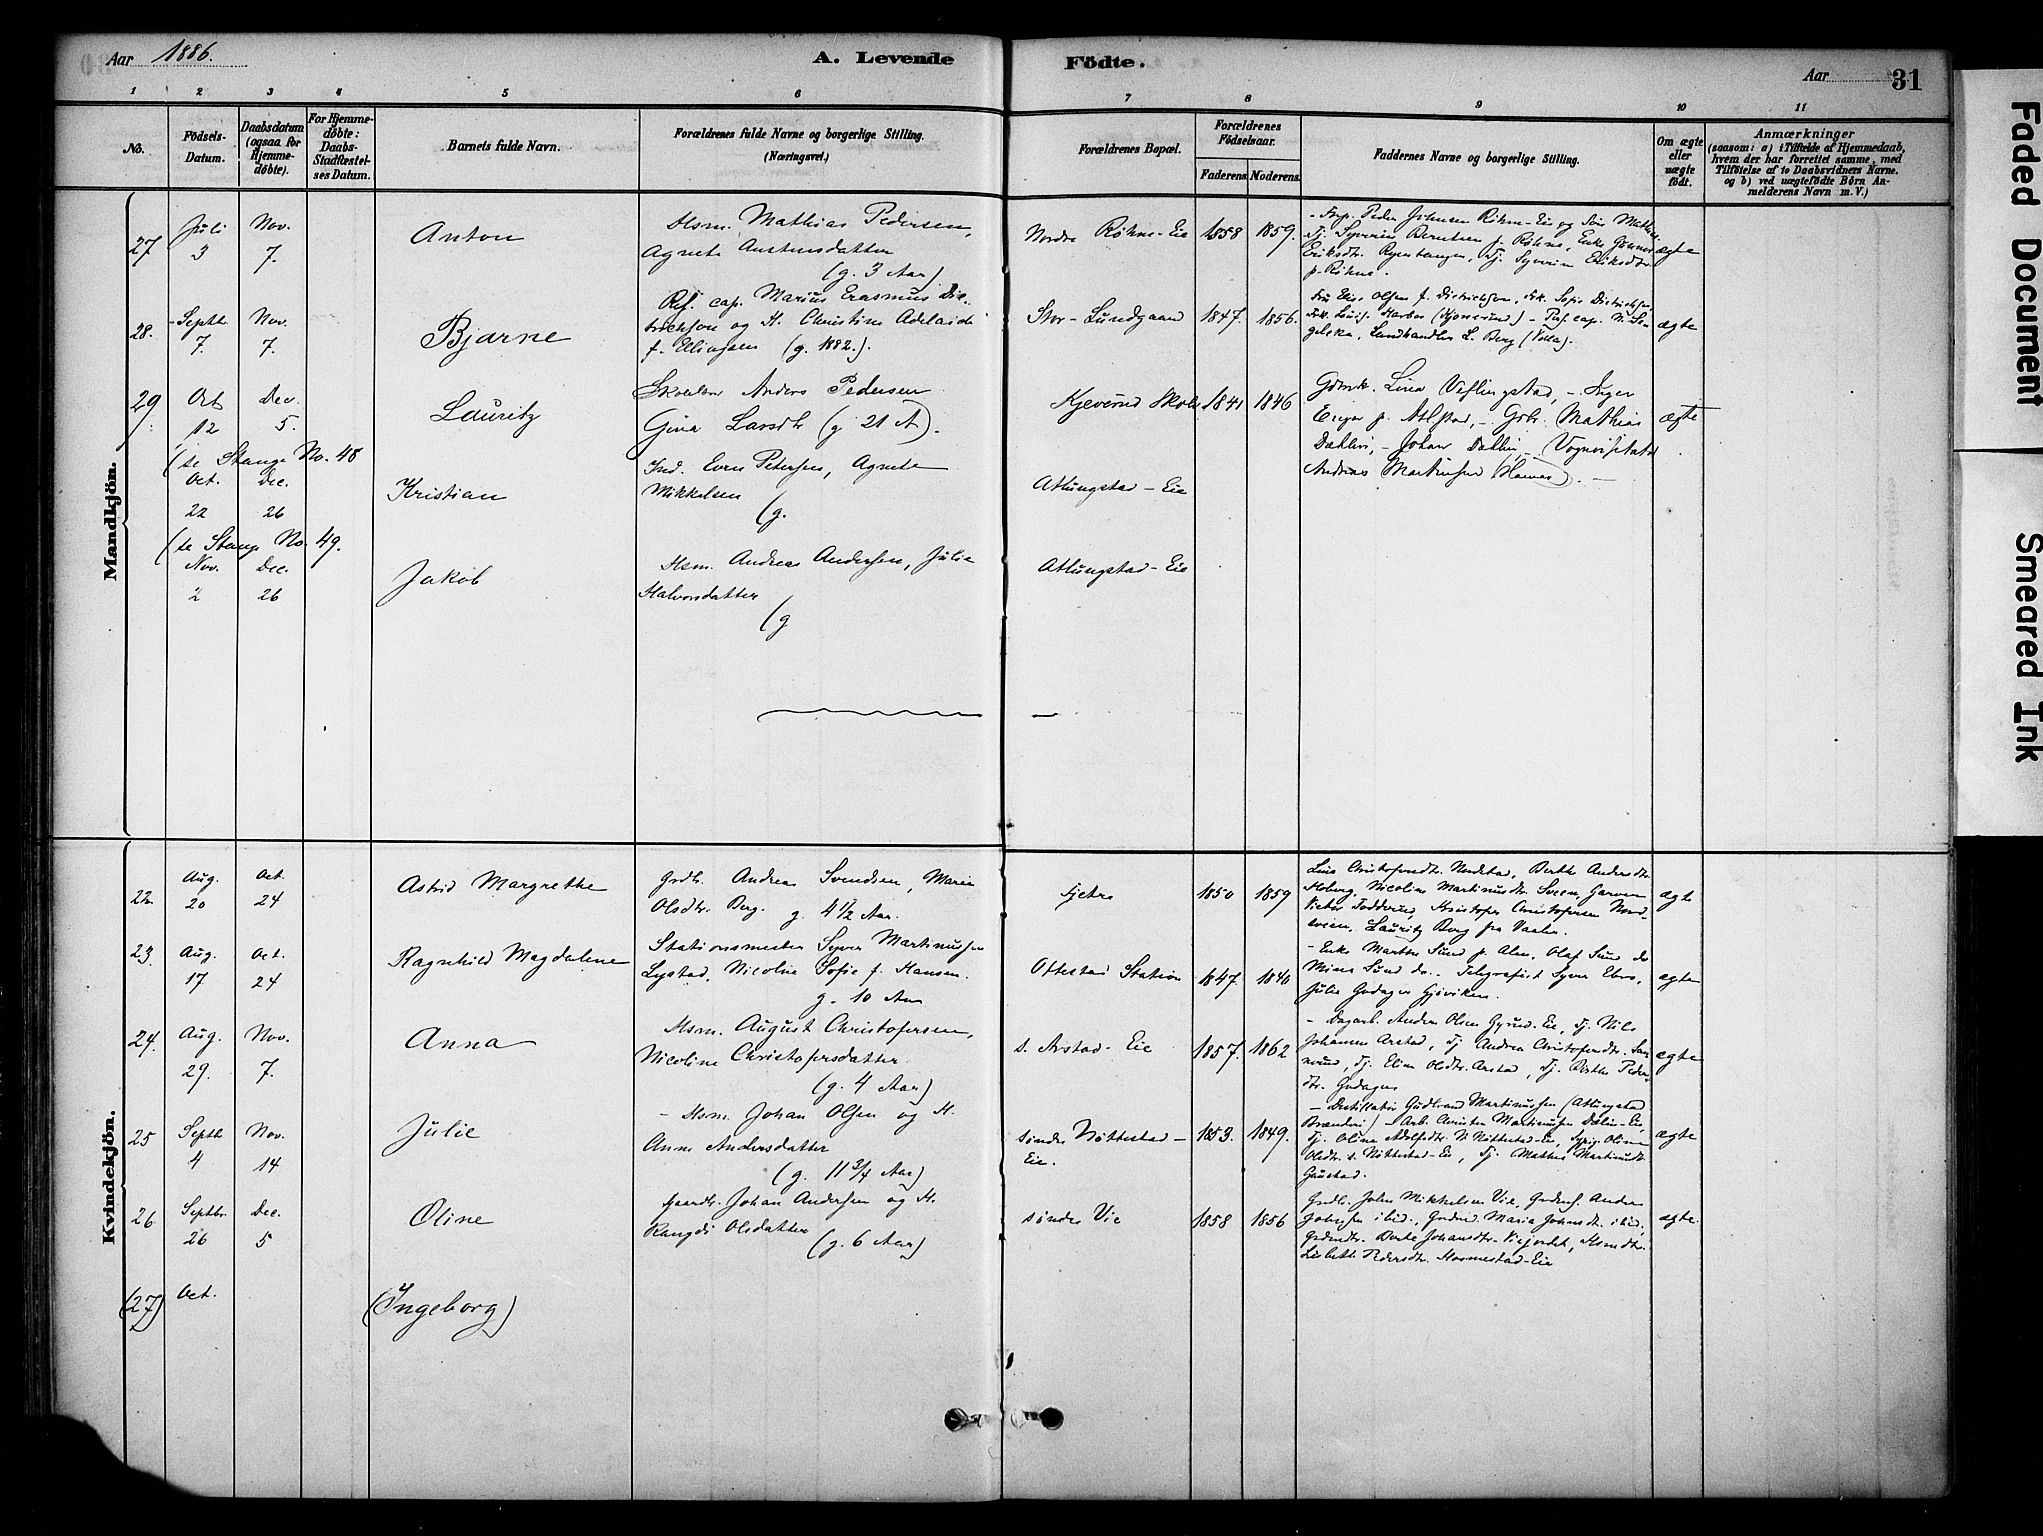 Aar 1886.
A. Levende Födte.
Aar 31
1 2 3 4 5 6 7 8 9 10 11
No.
Födsels-Datum.
Daabsdatum (ogsaa for Hjemme-døbte).
For Hjemme-døbte: Daabs-Stadfæstel-ses Datum.
Barnets fulde Navn.
Forældrenes fulde Navne og borgerlige Stilling. (Næringsvei.)
Forældrenes Bopæl.
Forældrenes Fødselsaar.
Faderens Moderens.
Faddernes Navne og borgerlige Stilling.
Om ægte eller uægte født.
Anmærkninger
(saasom: a) i Tilfælde af Hjemmedaab,
hvem der har forrettet samme, med
Tilføielse af to Daabsvidners Navne.
og b) ved uægtefødte Børn An-
melderens Navn m. V.)
Mandkjön.
27 Juli 3 Nov. 7. Anton
Hsm. Mathias Pedersen,
Agnete Austensdatter
(g. 3 Aar)
Nordre Röhne-Eie 1858 1859.
Peder Johnsen Röhne-Eie og
Tj. Syverin Berntsen p. Röhne, Enke
Eriksdtr. Tj. Syverin Eriksdtr.
p. Röhne.
ægte
28. Septbr. 7. Nov. 7. Bjarne
cap. Marius Erasmus Die-
trichson og H. Christine Adelaide
f. Ellingsen (g. 1882.).
Stor-Lundgaard 1847. 1856.
Olsen f. Dietrichson, Frk. Sofie Dietrichson
cap. N.
Landhandler L. Berg
ægte
29 Oct 12 Dec. 5. Lauritz
Skolelær Anders Pedersen
Gina Larsdtr (g 21 A).
Kjeverud Skole 1841 1846
Lina Veflingstad, - Inger
Enger p. Atlstad, - Gbr. Mathias
Dæhlin, - Johan Dæhlin, - Vognvisitatør
Andreas Martinsen (Hamar).
ægte
(se Stange No. 48
Oct. 22 Dec. 26 Kristian
Ind. Even Petersen, Agnete
Mikkelsen
(g.
Atlungstad-Eie
(se Stange No. 49.
Nov. 2 Dec. 26 Jakob
Hsm. Andreas Andersen, Julie
Halvorsdatter
(g
Atlungstad-Eie
Kvindekjön.
22. Aug. 20 Oct. 24 Astrid Margrethe
Grdb. Andreas Svendsen, Maria
Olsdtr. Berg. g. 4½ Aar.
Gjetre 1850 1859
Lina Christofersdtr. Nordstad, Berthe Andersdtr.
Hoberg, Nicoline Martinusdtr. Sveen, Garver
Kristofer Christofersen Nord-
sveen, Lauritz Berg fra Vaaler.
ægte
23. Aug. 17 Oct. 24 Ragnhild Magdalene
Stationsmester Syver Martinussen
Lystad, Nicoline Sofie f. Hansen.
g. 10 Aar
Ottestad Station 1847. 1840
- Enke Marthe Sund p. Alm, Olaf Sund do
Mina Sund do. - Telegrafist Syver
Julie Godager Gjöviken.
ægte
24. Aug. 29. Nov. 7. Anna
Hsm. August Christofersen,
Nicoline Christofersdatter
(g. 4 Aar)
s. Arstad-Eie 1857. 1862
- Dagarb. Anders Olsen Gyrud-Eie, Tj. Nils
Johannes Arstad, Tj Andrea Christofersdtr.
Tj. Elise Olsdtr. Arstad, Tj. Berthe Peders-
dtr. Godager
ægte
25 Septbr. 4 Nov. 14 Julie
- Hsm. Johan Olsen og H.
Anne Andersdatter
(g. 11 3/4 Aar)
söndre Nöttestad-
Eie.
1853. 1849.
- Destillatör Gudbrand Martinussen (Atlungstad
Brænderi) - Arb. Christen Martinussen Dælin-Eie,
Tj. Oline Adolfsdtr. N. Nöttestad-Eie, Sypige Oline
Olsdtr. s. Nöttestad-Eie, Tj. Mathea Martinusdtr.
Gaustad.
ægte
26 Septbr. 26 Dec. 5 Oline
Gaardb. Johan Andersen og H.
Rangdi Olsdatter
(g. 6 Aar)
söndre Vie 1858 1856
Grdb. John Mikkelsen Vie, Anders
ibid., Maria Johnsdtr. ibid,
Berte Johansdtr. Hsmdtr.
Lisbeth Pedersdtr. Hosmestad-Eie
ægte.
(27) Oct. (Ingeborg)
Faded Document
Smeared Ink